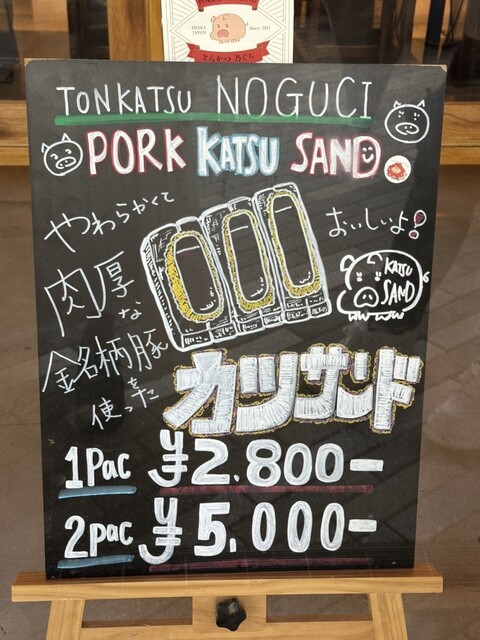 OSAKA
JAPAN
Since 2021
とんかつ 乃ぐち
TONKATSU NOGUCI
PORK KATSU SAND
やわらかくて
肉厚
な
銘柄豚
を
使った
おいしいよ!
KATSU
SAND
カツサンド
1Pac ¥2.800-
2pac ¥5,000-